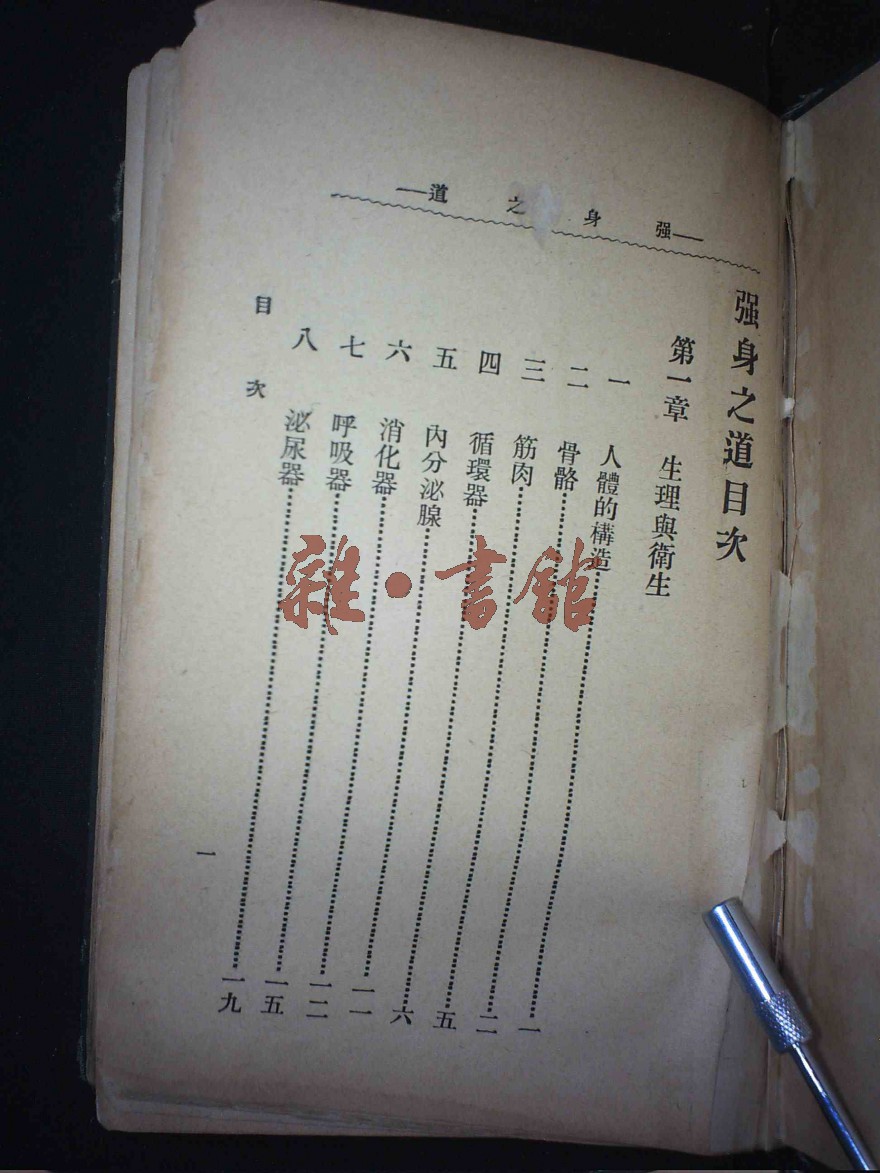 —强身之道—
强身之道目次
第一章 生理與衛生
一 人體的構造……一
二 骨骼……二
三 筋肉……五
四 循環器……六
五 內分泌腺……一一
六 消化器……一二
七 呼吸器……一五
八 泌尿器……一九
目次
一
雜·書館